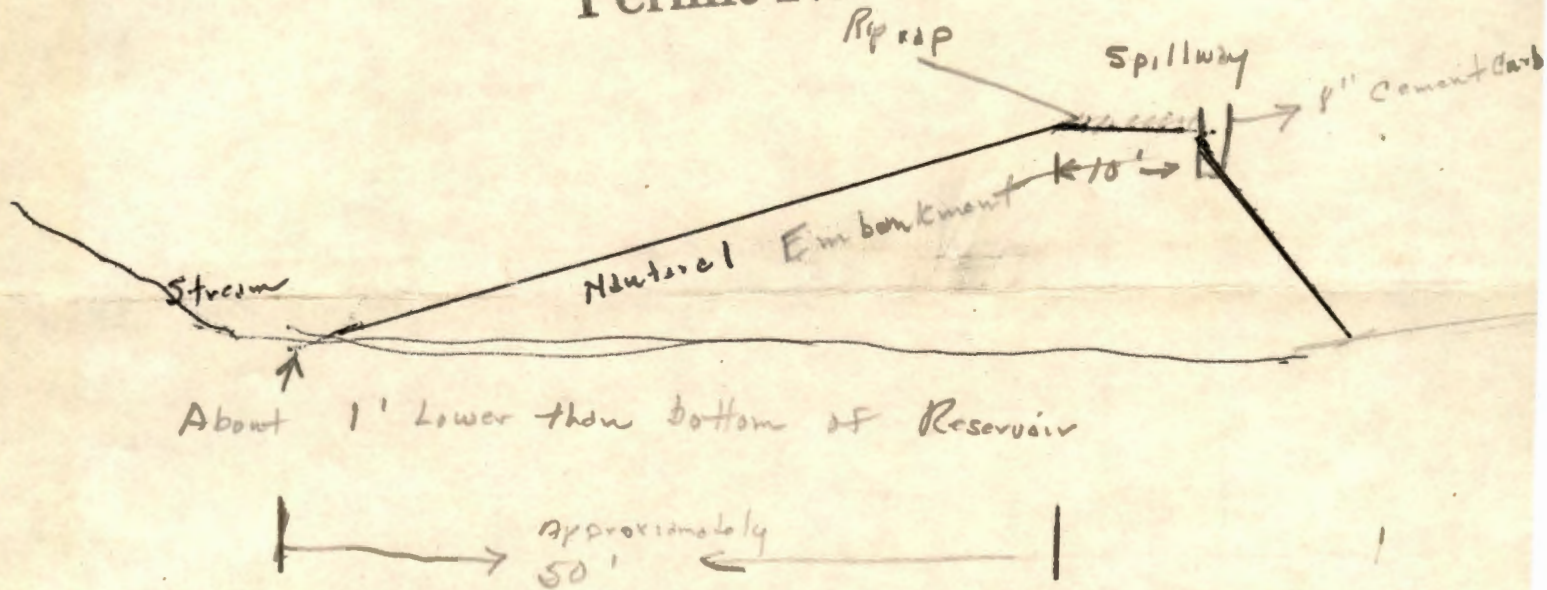 Rip rap
Spillway
8" Cement Curb
10'
Nauteral Embankment
Stream
About 1' Lower than bottom of Reservoir
Approximately
50'